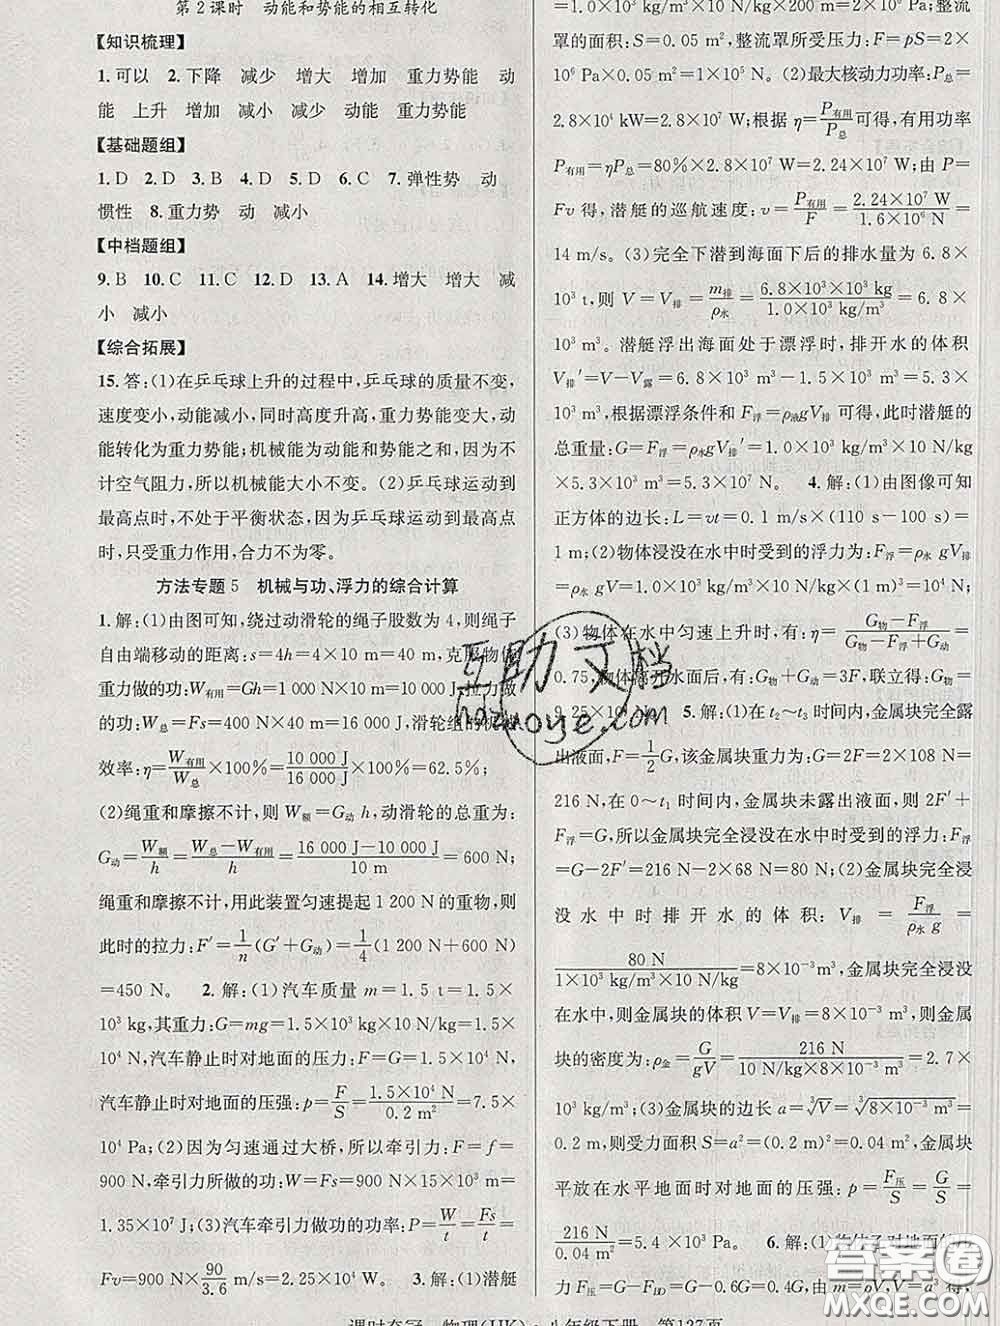 第2课时 动能和势能的相互转化
【知识梳理】
1.可以 2.下降 减少 增大 增加 重力势能 动
能 上升 增加 减小 减少 动能 重力势能
【基础题组】
1.D 2.D 3.B 4.D 5.D 6.C 7.弹性势 动
惯性 8.重力势 动 减小
【中档题组】
9.B 10.C 11.C 12.D 13.A 14.增大 增大 减
小 减小
【综合拓展】
15.答:(1)在乒乓球上升的过程中,乒乓球的质量不变,
速度变小,动能减小,同时高度升高,重力势能变大,动
能转化为重力势能;机械能为动能和势能之和,因为不
计空气阻力,所以机械能大小不变。(2)乒乓球运动到
最高点时,不处于平衡状态,因为乒乓球运动到最高点
时,只受重力作用,合力不为零。
方法专题5 机械与功、浮力的综合计算
1.解:(1)由图可知,绕过动滑轮的绳子股数为4,则绳子
自由端移动的距离:s=4h=4×10 m=40 m,克服物体
重力做的功:W有用=Gh=1 000 N×10 m=10 000 J,拉力做
的功:W总=Fs=400 N×40 m=16 000 J,滑轮组的机械
效率:η=W有用/W总×100%=10 000 J/16 000 J×100%=62.5%;
(2)绳重和摩擦不计,则 W额=G动h,动滑轮的总重为:
G动=W额/h=(W总-W有用)/h=(16 000 J-10 000 J)/10 m=600 N;
绳重和摩擦不计,用此装置匀速提起1 200 N的重物,则
此时的拉力:F′=1/n(G′+G动)=1/4(1 200 N+600 N)
=450 N。 2.解:(1)汽车质量 m=1.5 t=1.5×
10³ kg,其重力:G=mg=1.5×10³ kg×10 N/kg=1.5×
10⁴ N,汽车静止时对地面的压力:F=G=1.5×10⁴ N,
汽车静止时对地面的压强:p=F/S=1.5×10⁴ N/0.2 m²=7.5×
10⁴ Pa;(2)因为匀速通过大桥,所以牵引力:F=f=
900 N,牵引力所做的功:W=Fs=900 N×15×10³ m=
1.35×10⁷ J;(3)汽车牵引力做功的功率:P=W/t=Fs/t=
Fv=900 N×90/3.6 m/s=2.25×10⁴ W。 3.解:(1)潜艇
=1.0×10³ kg/m³×10 N/kg×200 m=2×10⁶ Pa,整流
罩的面积:S=0.05 m²,整流罩所受压力:F=pS=2×
10⁶ Pa×0.05 m²=1×10⁵ N。(2)最大核动力功率:P总=
2.8×10⁴ kW=2.8×10⁷ W;根据 η=P有用/P总 可得,有用功率
P有用=ηP总=80%×2.8×10⁷ W=2.24×10⁷ W;由 P=
Fv 得,潜艇的巡航速度:v=P有用/F=2.24×10⁷ W/1.6×10⁶ N=
14 m/s。(3)完全下潜到海面下后的排水量为 6.8×
10³ t,则 V=V排=m排/ρ水=6.8×10³×10³ kg/1.0×10³ kg/m³=6.8×
10³ m³。潜艇浮出海面处于漂浮时,排开水的体积
V排′=V-V露=6.8×10³ m³-1.5×10³ m³=5.3×
10³ m³,根据漂浮条件和 F浮=ρ液gV排 可得,此时潜艇的
总重量:G=F浮=ρ水gV排′=1.0×10³ kg/m³×10 N/kg
×5.3×10³ m³=5.3×10⁷ N。 4.解:(1)由图像可知
正方体的边长:L=vt=0.1 m/s×(110 s-100 s)=
1 m;(2)物体浸没在水中时受到的浮力为:F浮=ρ水gV排
=1.0×10³ kg/m³×10 N/kg×(1 m)³=1×10⁴ N;
(3)物体在水中匀速上升时,有:η=(G物-F浮)/(G物-F浮+G动)=
0.75,物体离开水面后,有:G物+G动=3F,联立得:G物=
9.25×10⁴ N。 5.解:(1)在 t₂~t₃ 时间内,金属块完全露
出液面,F=1/2G,该金属块重力为:G=2F=2×108 N=
216 N,在 0~t₁ 时间内,金属块未露出液面,则 2F′+
F浮=G,所以金属块完全浸没在水中时受到的浮力:F浮
=G-2F′=216 N-2×68 N=80 N;(2)金属块完全浸
没水中时排开水的体积:V排=F浮/ρ水g=
80 N/1×10³ kg/m³×10 N/kg=8×10⁻³m³,金属块完全浸没
在水中,则金属块的体积V=V排=8×10⁻³ m³,则金属
块的密度为:ρ金=G/gV=216 N/10 N/kg×8×10⁻³ m³=2.7×
10³ kg/m³;(3)金属块的边长 a=∛V=∛8×10⁻³ m³=
0.2 m,则受力面积 S=a²=(0.2 m)²=0.04 m²,金属块
平放在水平地面时对地面的压强:p=F压/S=G/S=
216 N/0.04 m²=5.4×10³ Pa。 6.解:(1)物体A对地面的压
力F压=G-F浮=G-0.6G=0.4G,由 m=ρV,V=a³ 得,
课时夺冠 物理(HK)·八年级下册 第127页
互助文档
hdzuoye.com
答案圈
MXQE.COM